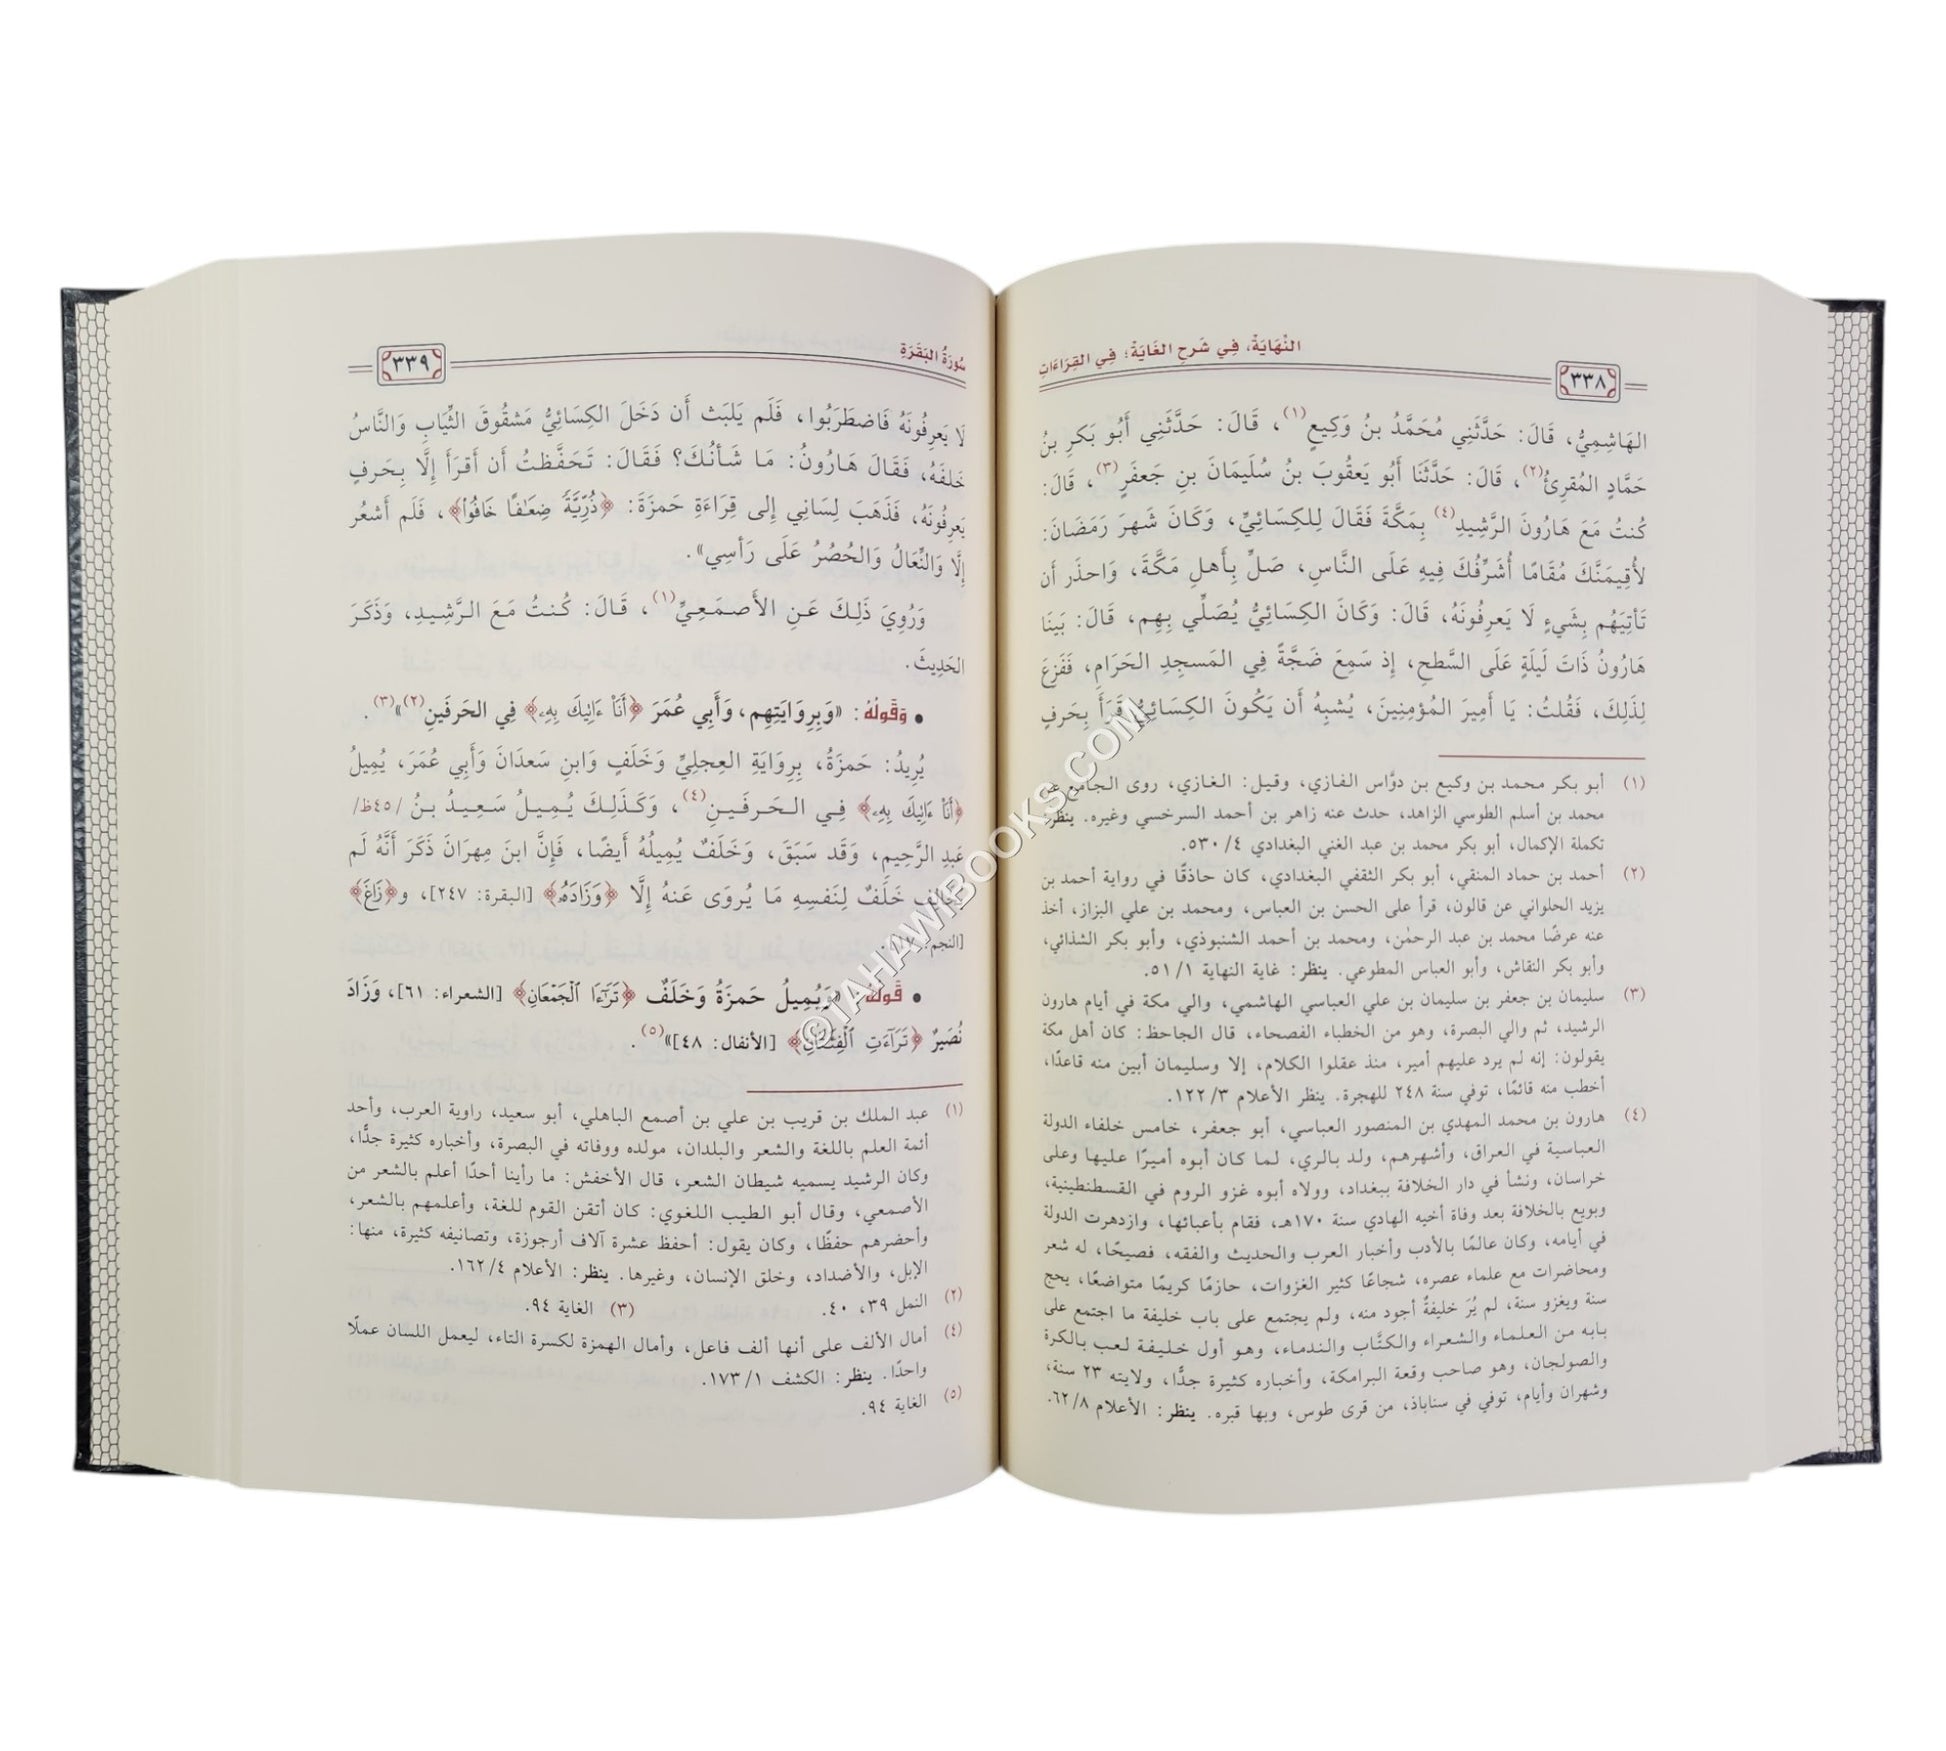 النِّهَايَةُ، فِي شَرحِ الغَايَةُ؛ فِي القِرَاءَاتِ
٣٣٨
الهَاشِمِيُّ، قَالَ: حَدَّثَنِي مُحَمَّدُ بنُ وَكِيعٍ(١)، قَالَ: حَدَّثَنِي أَبُو بَكرِ بنُ
حَمَّادٍ المُقرِئُ(٢)، قَالَ: حَدَّثَنَا أَبُو يَعقُوبَ بنُ سُلَيمَانَ بنِ جَعفَرٍ(٣)، قَالَ:
كُنتُ مَعَ هَارُونَ الرَّشِيدِ(٤) بِمَكَّةَ فَقَالَ لِلكِسَائِيِّ، وَكَانَ شَهرَ رَمَضَانَ:
لأُقِيمَنَّكَ مُقَامًا أُشَرِّفُكَ فِيهِ عَلَى النَّاسِ، صَلِّ بِأَهلِ مَكَّةَ، وَاحذَر أَن
تَأتِيَهُم بِشَيءٍ لَا يَعرِفُونَهُ، قَالَ: وَكَانَ الكِسَائِيُّ يُصَلِّي بِهِم، قَالَ: بَينَا
هَارُونُ ذَاتَ لَيلَةٍ عَلَى السَّطحِ، إِذ سَمِعَ ضَجَّةً فِي المَسجِدِ الحَرَامِ، فَفَزِعَ
لِذَلِكَ، فَقُلتُ: يَا أَمِيرَ المُؤمِنِينَ، يُشبِهُ أَن يَكُونَ الكِسَائِيُّ قَرَأَ بِحَرفٍ
(١) أبو بكر محمد بن وكيع بن دوَّاس الفازي، وقيل: الغازي، روى الجامع عن
محمد بن أسلم الطوسي الزاهد، حدث عنه زاهر بن أحمد السرخسي وغيره. ينظر:
تكملة الإكمال، أبو بكر محمد بن عبد الغني البغدادي ٤/ ٥٣٠.
(٢) أحمد بن حماد المنقي، أبو بكر الثقفي البغدادي، كان حاذقًا في رواية أحمد بن
يزيد الحلواني عن قالون، قرأ على الحسن بن العباس، ومحمد بن علي البزاز، أخذ
عنه عرضًا محمد بن عبد الرحمٰن، ومحمد بن أحمد الشنبوذي، وأبو بكر الشذائي،
وأبو بكر النقاش، وأبو العباس المطوعي. ينظر: غاية النهاية ١/ ٥١.
(٣) سليمان بن جعفر بن سليمان بن علي العباسي الهاشمي، والي مكة في أيام هارون
الرشيد، ثم والي البصرة، وهو من الخطباء الفصحاء، قال الجاحظ: كان أهل مكة
يقولون: إنه لم يرد عليهم أمير، منذ عقلوا الكلام، إلا وسليمان أبين منه قاعدًا،
أخطب منه قائمًا، توفي سنة ٢٤٨ للهجرة. ينظر الأعلام ٣/ ١٢٢.
(٤) هارون بن محمد المهدي بن المنصور العباسي، أبو جعفر، خامس خلفاء الدولة
العباسية في العراق، وأشهرهم، ولد بالري، لما كان أبوه أميرًا عليها وعلى
خراسان، ونشأ في دار الخلافة ببغداد، وولاه أبوه غزو الروم في القسطنطينية،
وبويع بالخلافة بعد وفاة أخيه الهادي سنة ١٧٠هـ، فقام بأعبائها، وازدهرت الدولة
في أيامه، وكان عالمًا بالأدب وأخبار العرب والحديث والفقه، فصيحًا، له شعر
ومحاضرات مع علماء عصره، شجاعًا كثير الغزوات، حازمًا كريمًا متواضعًا، يحج
سنة ويغزو سنة، لم يُرَ خليفةٌ أجود منه، ولم يجتمع على باب خليفة ما اجتمع على
بابه من العلماء والشعراء والكتَّاب والندماء، وهو أول خليفة لعب بالكرة
والصولجان، وهو صاحب وقعة البرامكة، وأخباره كثيرة جدًّا، ولايته ٢٣ سنة،
وشهران وأيام، توفي في سناباذ، من قرى طوس، وبها قبره. ينظر: الأعلام ٨/ ٦٢.
سُورَةُ البَقَرَةِ
٣٣٩
لَا يَعرِفُونَهُ فَاضطَرَبُوا، فَلَم يَلبَث أَن دَخَلَ الكِسَائِيُّ مَشقُوقَ الثِّيَابِ وَالنَّاسُ
خَلفَهُ، فَقَالَ هَارُونُ: مَا شَأنُكَ؟ فَقَالَ: تَحَفَّظتُ أَن أَقرَأَ إِلَّا بِحَرفٍ
يَعرِفُونَهُ، فَذَهَبَ لِسَانِي إِلى قِرَاءَةِ حَمزَةَ: ﴿ذُرِّيَّةً ضِعَٰفًا خَافُواْ﴾، فَلَم أَشعُر
إِلَّا وَالنِّعَالُ وَالحُصُرُ عَلَى رَأسِي».
وَرُوِيَ ذَلِكَ عَنِ الأَصمَعِيِّ(١)، قَالَ: كُنتُ مَعَ الرَّشِيدِ، وَذَكَرَ
الحَدِيثَ.
• وَقَولُهُ: «وَبِرِوَايَتِهِم، وَأَبِي عُمَرَ ﴿أَنَا۠ ءَاتِيكَ بِهِۦ﴾ فِي الحَرفَينِ(٢)»(٣).
يُرِيدُ: حَمزَةُ، بِرِوَايَةِ العِجلِيِّ وَخَلَفٍ وَابنِ سَعدَانَ وَأَبِي عُمَرَ، يُمِيلُ
﴿أَنَا۠ ءَاتِيكَ بِهِۦ﴾ فِي الحَرفَينِ(٤)، وَكَذَلِكَ يُمِيلُ سَعِيدُ بنُ /٤٥ظ/
عَبدِ الرَّحِيمِ، وَقَد سَبَقَ، وَخَلَفٌ يُمِيلُهُ أَيضًا، فَإِنَّ ابنَ مِهرَانَ ذَكَرَ أَنَّهُ لَم
يُخَالِف خَلَفٌ لِنَفسِهِ مَا يُروَى عَنهُ إِلَّا ﴿وَزَادَهُۥ﴾ [البقرة: ٢٤٧]، و﴿زَاغَ﴾
[النجم: ١٧].
• قَولُهُ: «وَيُمِيلُ حَمزَةُ وَخَلَفٌ ﴿تَرَٰٓءَا ٱلۡجَمۡعَانِ﴾ [الشعراء: ٦١]، وَزَادَ
نُصَيرٌ ﴿تَرَآءَتِ ٱلۡفِئَتَانِ﴾ [الأنفال: ٤٨]»(٥).
(١) عبد الملك بن قريب بن علي بن أصمع الباهلي، أبو سعيد، راوية العرب، وأحد
أئمة العلم باللغة والشعر والبلدان، مولده ووفاته في البصرة، وأخباره كثيرة جدًّا،
وكان الرشيد يسميه شيطان الشعر، قال الأخفش: ما رأينا أحدًا أعلم بالشعر من
الأصمعي، وقال أبو الطيب اللغوي: كان أتقن القوم للغة، وأعلمهم بالشعر،
وأحضرهم حفظًا، وكان يقول: أحفظ عشرة آلاف أرجوزة، وتصانيفه كثيرة، منها:
الإبل، والأضداد، وخلق الإنسان، وغيرها. ينظر: الأعلام ٤/ ١٦٢.
(٢) النمل ٣٩، ٤٠. (٣) الغاية ٩٤.
(٤) أمال الألف على أنها ألف فاعل، وأمال الهمزة لكسرة التاء، ليعمل اللسان عملًا
واحدًا. ينظر: الكشف ١/ ١٧٣.
(٥) الغاية ٩٤.
©TAHAWIBOOKS.COM